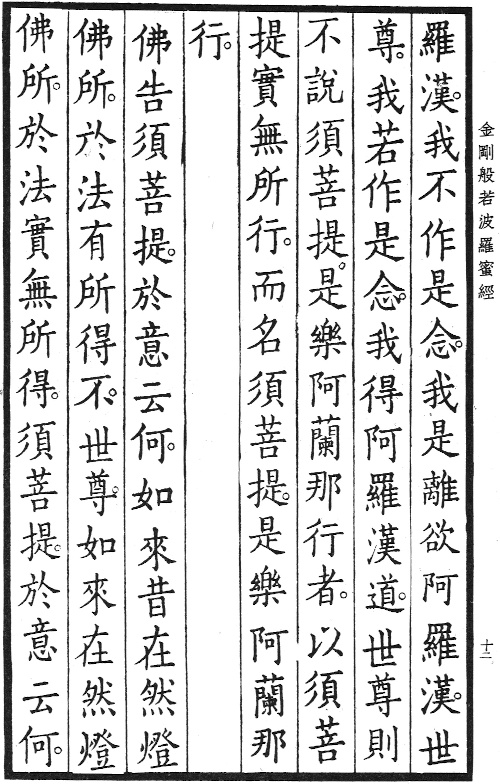 金剛般若波羅蜜經
十二
羅漢。我不作是念。我是離欲阿羅漢。世
尊。我若作是念。我得阿羅漢道。世尊則
不說須菩提。是樂阿蘭那行者。以須菩
提實無所行。而名須菩提。是樂阿蘭那
行。
佛告須菩提。於意云何。如來昔在然燈
佛所。於法有所得不。世尊。如來在然燈
佛所。於法實無所得。須菩提。於意云何。